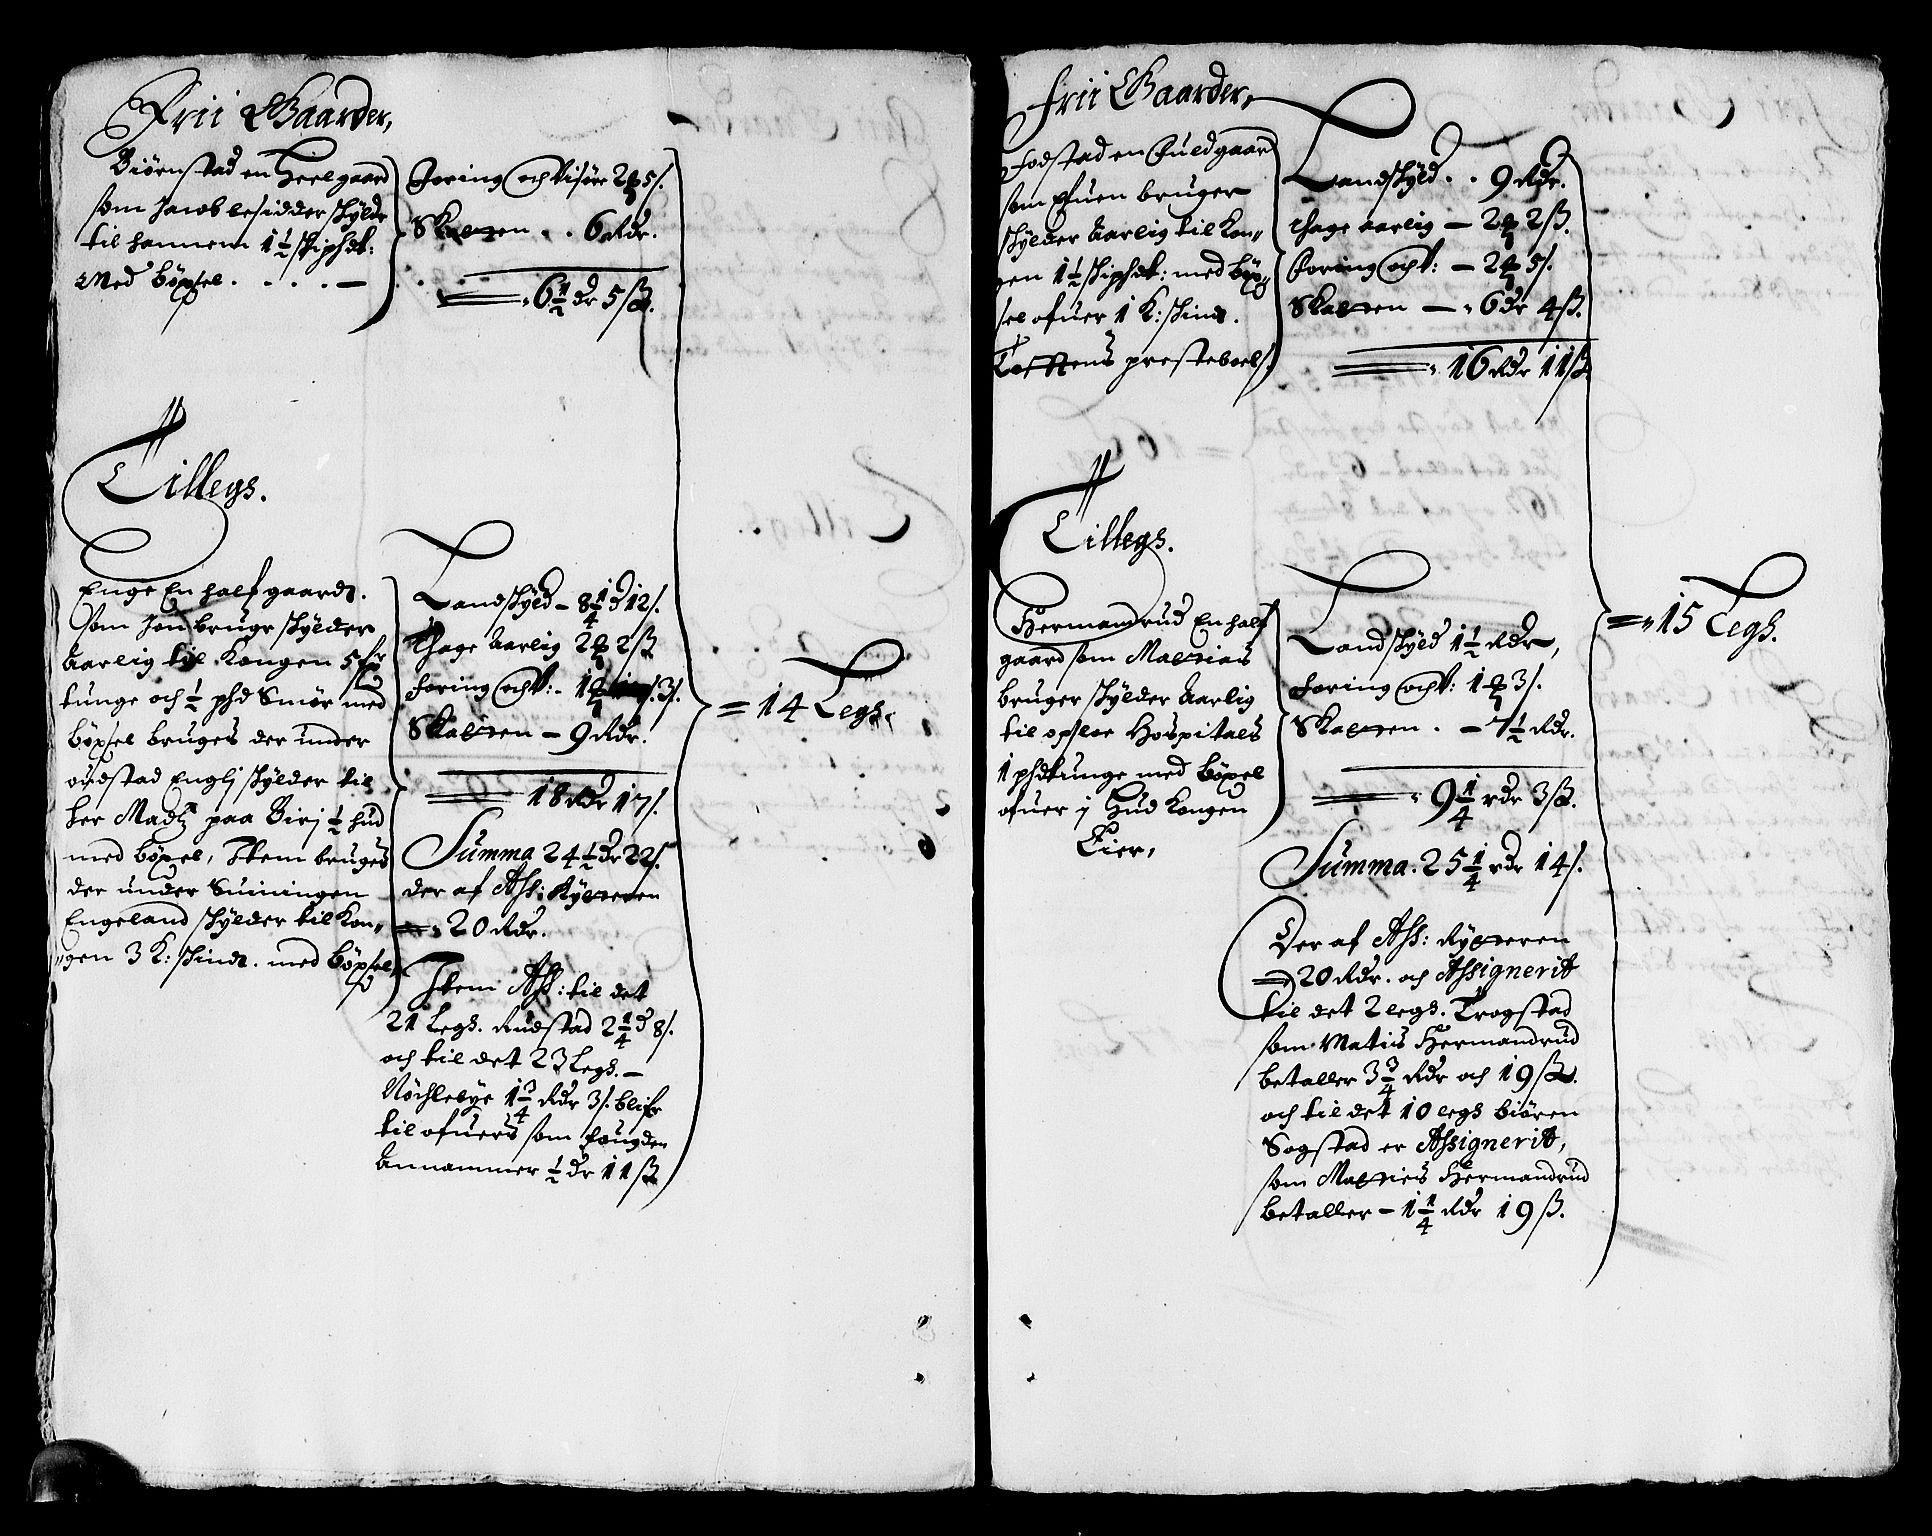 Frii Gaarder,
Biørnstad en Heelgaard
som Jacob besidder skylde
til hannem 1½ skiphdt:
Med böxsel . . . . —
Foring och Visöre 2 ß 5 s.
Skatten . . 6 Rdr.
6½ dr 5 ß.
Tillegs.
Enge En half gaardt.
som Jon bruge skylder
Aarlig til Kongen 5 fr
tunge och ½ phd Smør med
böxsel bruges der under
ödstad Englj skylder til
her Madtz paa Birj ½ hud
med böxel, Item bruges
der under Suiningen
Engeland skylder til Kon„
„gen 3 K: skind. med böxsel
Landskyld – 8¼ d 12 s.
Thage Aarlig 2 2 ß
Foring och V: – 1 3 s.
Skatten – 9 Rdr.
18 Rdr 17 s.
Summa 24½ dr 22 s.
der af Ass: Rytteren
20 Rdr.
Item Ass: til det
21 Legs. Rudstad 2¼ d 8 s.
och til det 23 Legs. –
Nöchlebye 1¾ Rdr 3 s. blifr
til ofuers som fougden
Annammer ½ dr 11 ß
= 14 Legs.
Frii Gaarder,
Fodstad en Fuldgaard
som Efuen bruger
skylder Aarlig til Kon„
gen 1½ skiphdt: med böx„
sel ofuer 1 K: skind.
Tofftens presteboels.
Landskyld . . 9 Rdr.
Thage aarlig – 2 2 ß.
Foring och V: – 2 5 s.
Skatten – 6 dr 4 ß.
16 Rdr 11 ß
Tillegs.
Hermandrud En half
gaard som Mattias
bruger skylder Aarlig
til opsloe Hospitals
1 phd tunge med böxel
ofuer j Hud Kongen
Eier,
Landskyld 1½ Rdr,
Foring och V: 1 3 s.
Skatten . – 7½ Rdr.
9¼ rdr 3 ß.
Summa. 25¼ rdr 14 s.
Der af Ass: Rytteren
20 Rdr. och Assignerit
til det 2 legs. Trogstad
som Matiis Hermandrud
betaller 3¾ Rdr och 19 ß.
och til det 10 legs biören
Sogstad er Assignerit,
som Matties Hermandrud
betaller – 1¼ Rdr 19 ß.
= 15 Legs.